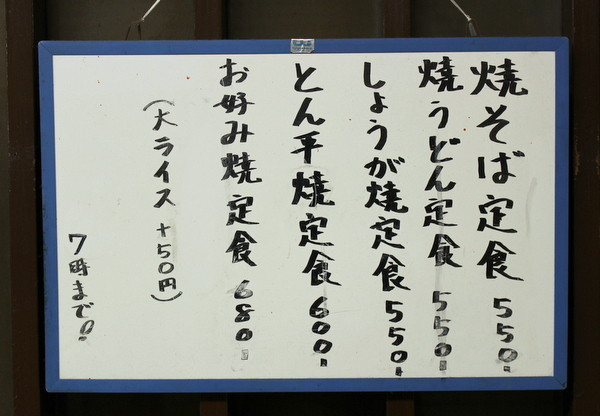 焼そば定食 550.
焼うどん定食 550.
しょうが焼定食 550.
とん平焼定食 600.
お好み焼定食 680.
(大ライス +50円)
7時まで!